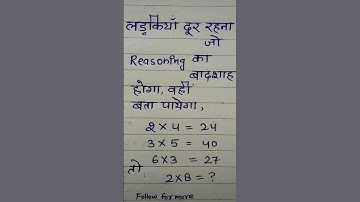 लड़कियाँ दूर रहना
जो
Reasoning का
बादशाह
होगा, वही
बता पायेगा,
2 × 4 = 24
3 × 5 = 40
6 × 3 = 27
तो, 2 × 8 = ?
Follow for more